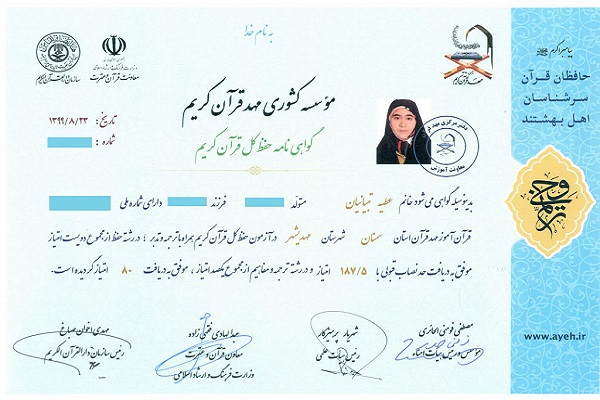 به نام خدا
جمهوری اسلامی ایران
وزارت فرهنگ و ارشاد اسلامی
معاونت قرآن و عترت
سازمان دارالقرآن الکریم
مهد قرآن کریم
مؤسسه کشوری مهد قرآن کریم
گواهی نامه حفظ کل قرآن کریم
تاریخ : ۱۳۹۹/۸/۲۳
شماره :
دفتر مرکزی مهد قرآن
معاونت آموزش
بدینوسیله گواهی می شود خانم عطیه تبیانیان متولد فرزند دارای شماره ملی
قرآن آموز مهد قرآن استان سمنان شهرستان مهدیشهر در آزمون حفظ کل قرآن کریم همراه با ترجمه و تدبر ؛ در رشته حفظ از مجموع دویست امتیاز
موفق به دریافت حد نصاب قبولی با ۱۸۷/۵ امتیاز و در رشته ترجمه و مفاهیم از مجموع یکصد امتیاز ، موفق به دریافت ۸۰ امتیاز گردیده است.
مصطفی فوعنی الحائری
موسس و رئیس هیات امناء
شهریار پرهیزگار
رئیس هیات علمی
عبدالهادی فقهی زاده
معاون قرآن و عترت
وزارت فرهنگ و ارشاد اسلامی
مهدی اخوان صباغ
رئیس سازمان دارالقرآن الکریم
پیامبر اکرم
حافظان قرآن
سرشناسان
اهل بهشتند
www.ayeh.ir